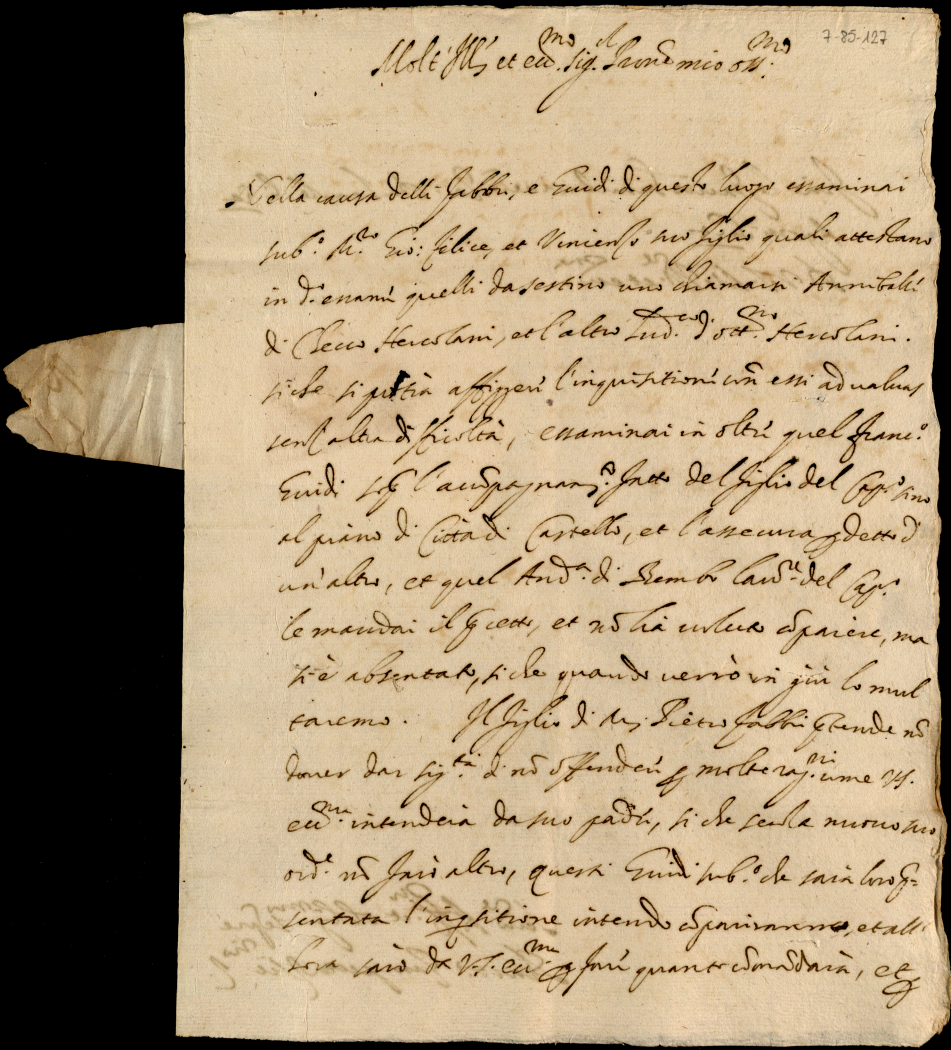 7-85-127
Molt' Ill.e et ecc.mo Sig.r Pron mio oss.mo
Nella causa delli Fabbri, e Guidi di questo luogo essaminai
sub.o M.ro Gio: Felice, et Vincenso suo figlio quali attestano
in d.o essame quelli da sestino uno chiamarsi Annibale
di Checco Hercolani, et l'altro Lud.co d'Ott.no Hercolani.
si che si potrà affigger l'inquisitione con essi ad valvas
senz'altra dificoltà, essaminai in oltre quel Franc.o
Guidi sop.a l'accompagnam.to fatto del figlio del Cap.o sino
al piano di Città di Castello, et l'assecura p detto d'
un altro, et quel And.a di Bembo lavor.e del Cap.o
le mandai il pcetto, et nõ hà voluto cõparere, ma
s'è absentato, si che quando verrò in giù lo mul
taremo. Il figlio di M. Pietro Fabbri ptende nõ
dover dar sig.tà di nõ offender p molte rag.ni come V.S.
ecc.ma intenderà da suo padre, si che senza nuovo suo
ord.e nõ farò altro, questi Guidi sub.o che sarà loro p-
sentata l'inqsitione intendo cõpariranno, et all'
hora sarò da V.S. ecc.ma p far quanto cõmandarà, et p